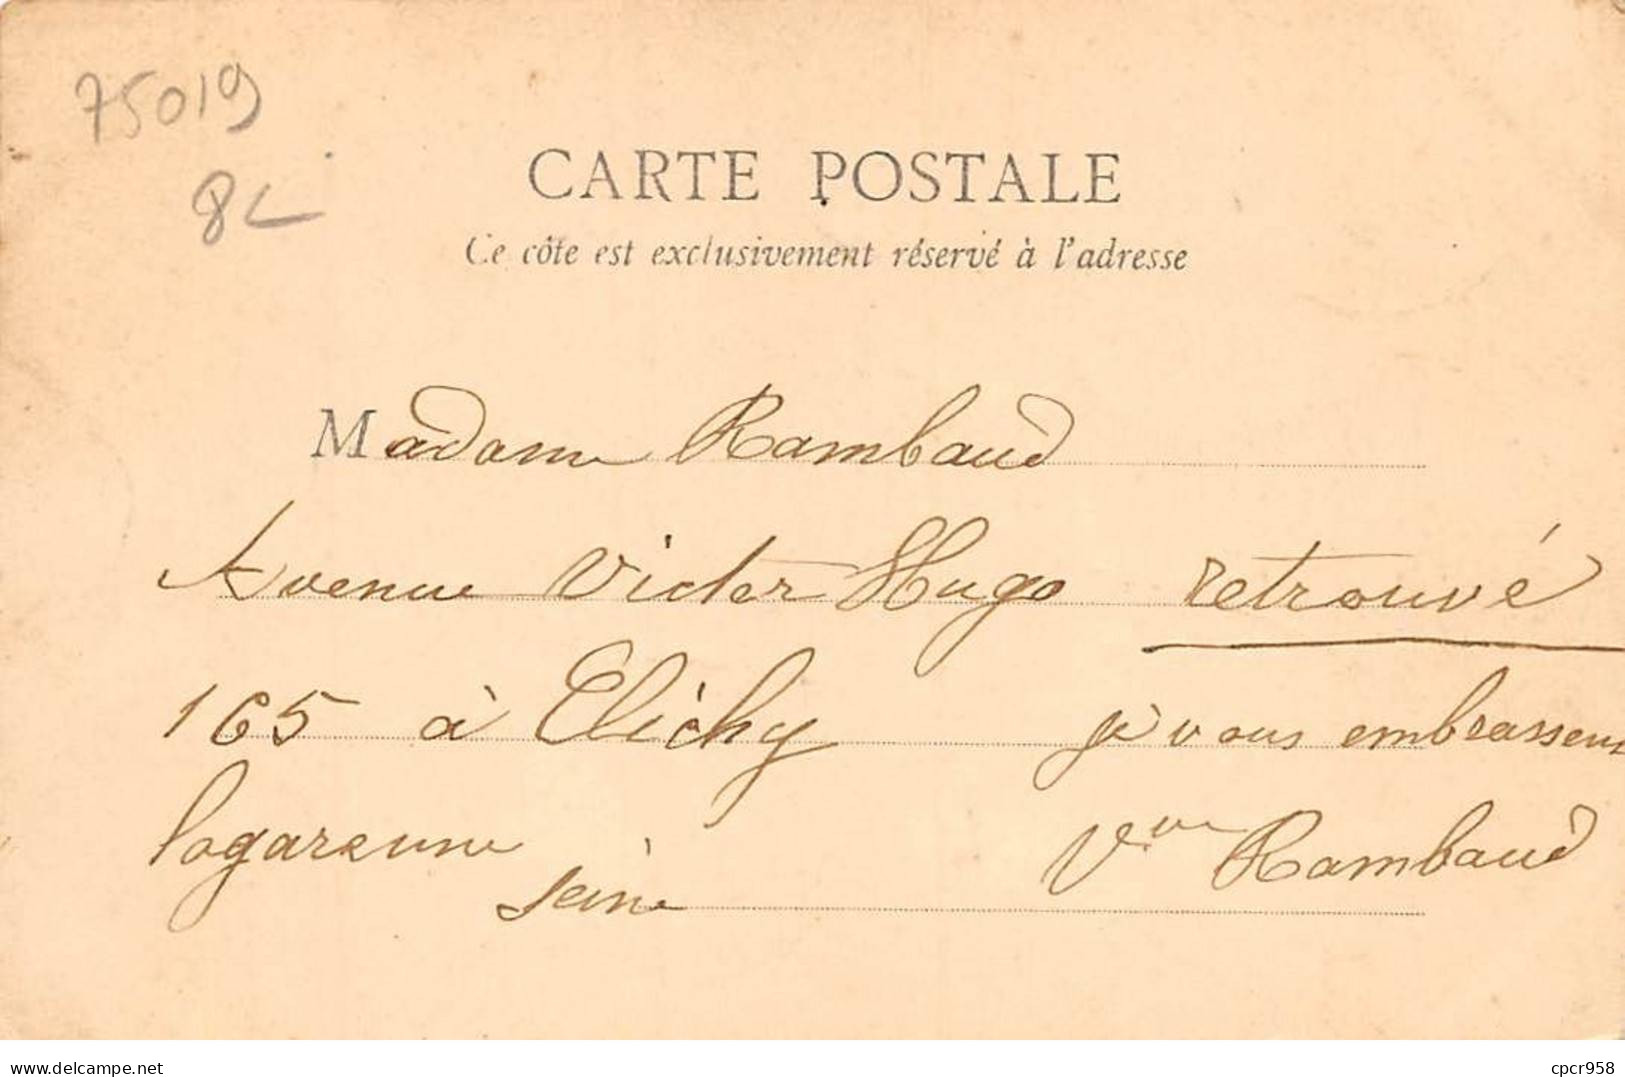 75019
8L
CARTE POSTALE
Ce côte est exclusivement réservé à l'adresse
Madame Rambaud
Avenue Victor Hugo retrouvé
165 à Clichy je vous embrasseus
lagarenne Vve Rambaud
seine
delcampe.net
cpcr958